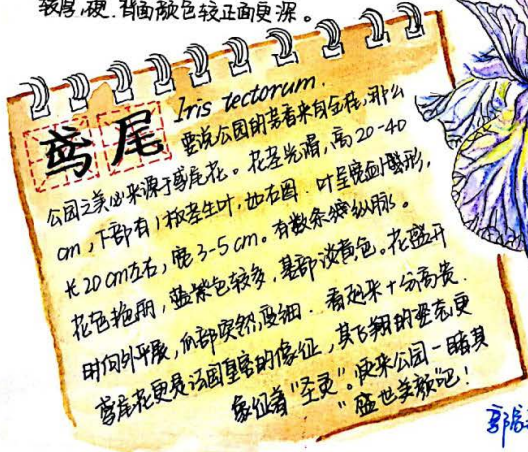 较厚,硬.背面颜色较正面更深。
鸢尾 Iris tectorum.
要说公园的若看来自金桂,那么
公园之美必来源于鸢尾花。花茎光滑,高20-40
cm,下部有1枚茎生叶,如右图.叶呈宽剑形,
长20cm左右,宽3-5cm。有数条纵脉。
花色艳丽,蓝紫色较多,基部淡黄色。花盛开
时向外平展,爪部突然变细.看起来十分高贵.
鸢尾花更是法国皇室的像征,其飞翔的姿态更
象征着“圣灵”。快来公园一睹其
“盛世美颜”吧!
郭